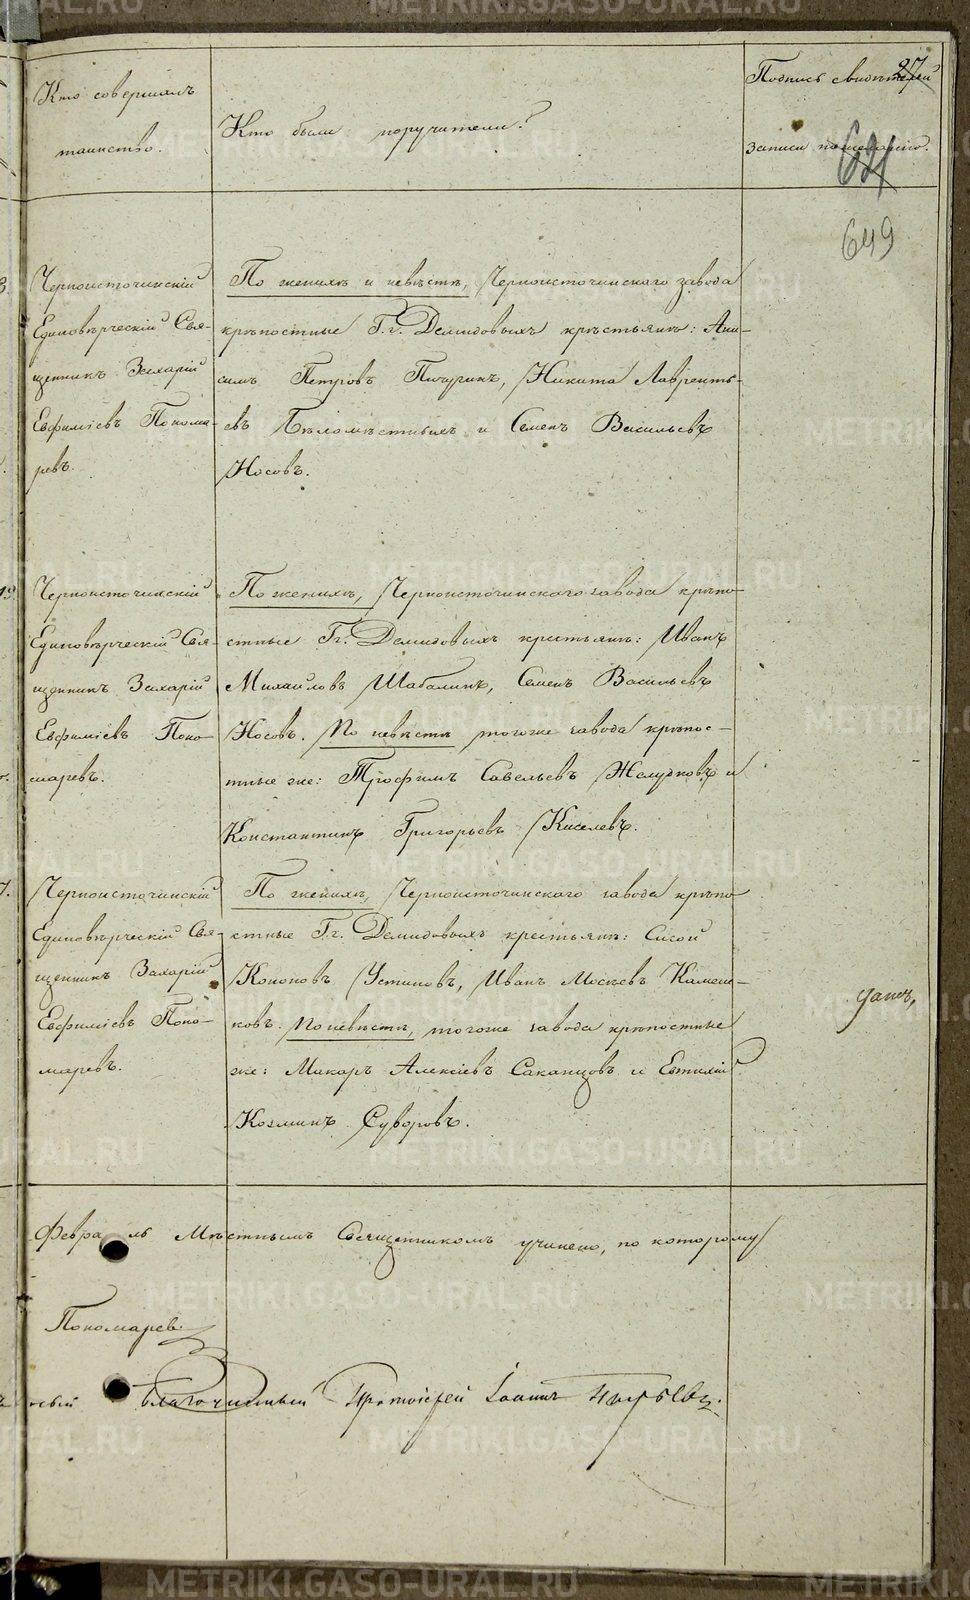 Кто совершалъ
таинство.
Кто были поручители?
Подпись свидѣтелей
записи по желанію.
27
649
Черноисточинскій
Единовѣрческій Свя-
щенникъ Захарій
Евфиміевъ Понома-
ревъ.
По женихѣ и невѣстѣ, Черноисточинскаго завода
крѣпостные Г.г. Демидовыхъ крѣстьяне: Ани-
симъ Петровъ Пичугинъ, Никита Лавренть-
евъ Бѣломѣстныхъ и Семенъ Васильевъ
Носовъ.
Черноисточинскій
Единовѣрческій Свя-
щенникъ Захарій
Евфиміевъ Поно-
маревъ.
По женихѣ, Черноисточинскаго завода крѣпо-
стные Гг. Демидовыхъ крестьяне: Иванъ
Михайловъ Шабалинъ, Семенъ Васильевъ
Носовъ. По невѣстѣ тогоже завода крѣпос-
тные же: Трофимъ Савельевъ Желудковъ и
Константинъ Григорьевъ Киселевъ.
Черноисточинскій
Единовѣрческій Свя-
щенникъ Захарій
Евфиміевъ Поно-
маревъ.
По женихѣ, Черноисточинскаго завода крѣпо-
стные Гг. Демидовыхъ крестьяне: Сисой
Кононовъ Устиновъ, Иванъ Мосѣевъ Камен-
ковъ. По невѣстѣ, тогоже завода крѣпостные
же: Макаръ Алексѣевъ Саканцовъ и Евтихій
Козминъ Суворовъ.
Февраль Мѣстнымъ Священникомъ учинено, по которому
Пономарев
Благочинный Протоіерей Іоаннъ
METRIKI.GASO-URAL.RU